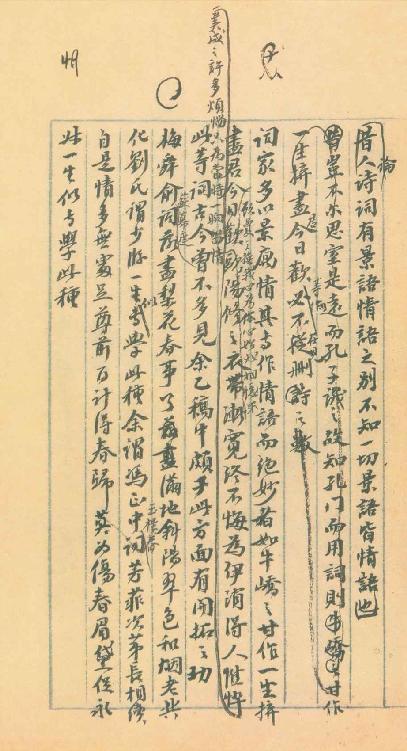 昔人論诗詞有景語情語之别不知一切景語皆情語也
豈不尔思室是遠而孔子譏之故知孔门而用詞則牛嶠之甘作
一生拚盡今日歡必不從刪詩之數
詞家多以景寓情其專作情語而絶妙者如牛嶠之甘作一生拚
盡君今日歡歐陽修之衣帶漸寬終不悔為伊消得人憔悴
顧夐之換我心為你心始知相憶深
美成之許多煩惱只為當時一晌留情
此等詞古今曾不多見余乙稿中頗于此方面有開拓之功
梅舜俞詞落盡梨花春事了滿地斜陽翠色和烟老共
蘇幕遮
化劉氏謂少游一生似專學此種余謂馮正中玉樓春詞芳菲次第長相續
自是情多無處足尊前百計得春歸莫為傷春眉黛促永
叔一生似專學此種